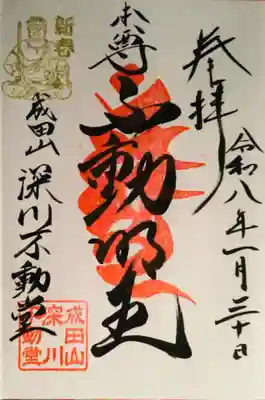 奉拝
令和八年一月三十日
本尊
不動明王
新春
成田山
深川不動堂
成田山
深川
不動堂